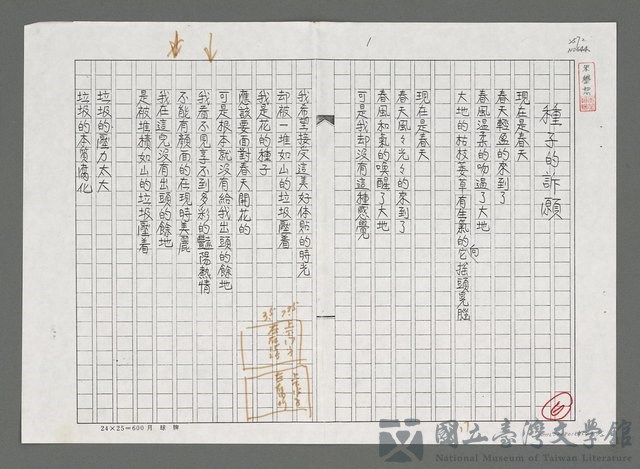 1
種子的訴願
現在是春天
春天輕盈的來到了
春風溫柔的吻過了大地
大地的枯枝萎草有生氣的向它搖頭晃腦
現在是春天
春天風々光々的來到了
春風和氣的喚醒了大地
可是我却没有這種感覺
我希望接受這美好体貼的時光
却被一堆如山的垃圾壓着
我是花的種子
應該要面對春天開花的
可是根本就没有給我出頭的餘地
我看不見享不到多彩的豔陽熱情
不能有顏面的在現時美麗
我在這兒没有出頭的餘地
是被堆積如山的垃圾壓着
垃圾的壓力太大
垃圾的本質腐化
6
24×25=600
國立臺灣文學館
National Museum of Taiwan Literature